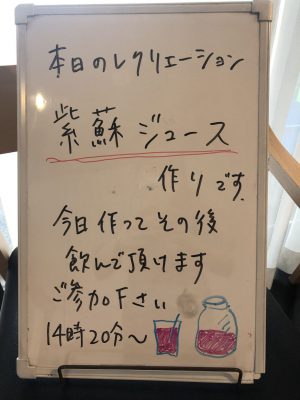 本日のレクリエーション
紫蘇ジュース
作りです
今日作ってその後
飲んで頂けます
ご参加下さい
14時20分〜